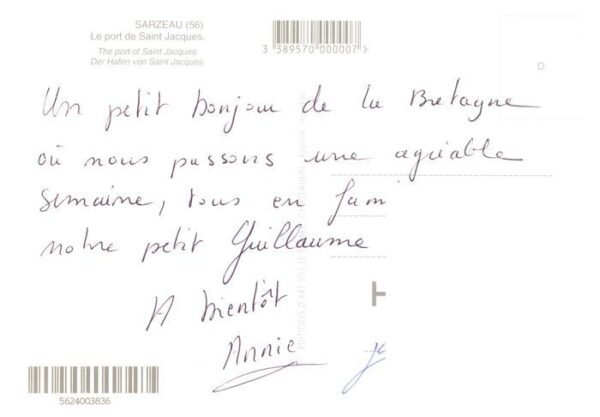 SARZEAU (56)
Le port de Saint Jacques.
The port of Saint Jacques.
Der Hafen von Saint Jacques.
3 389570 000007
D
Un petit bonjour de la Bretagne
où nous passons une agréable
semaine, tous en fam
notre petit Guillaume
A bientôt
Annie
H
EDITIONS D'ART JOS LE
5624003836